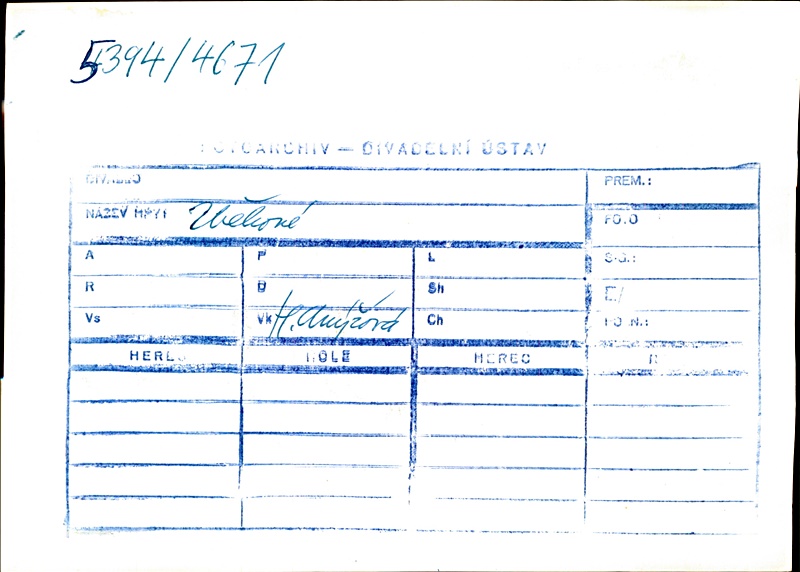 5394/4671
FOTOARCHIV — DIVADELNÍ ÚSTAV
DIVADLO PREM.:
NÁZEV HRY: FO.O
A P L SIG.:
R B Sh E/
Vs Vk H. Anýžová Ch FO.N.:
HEREC ROLE HEREC R